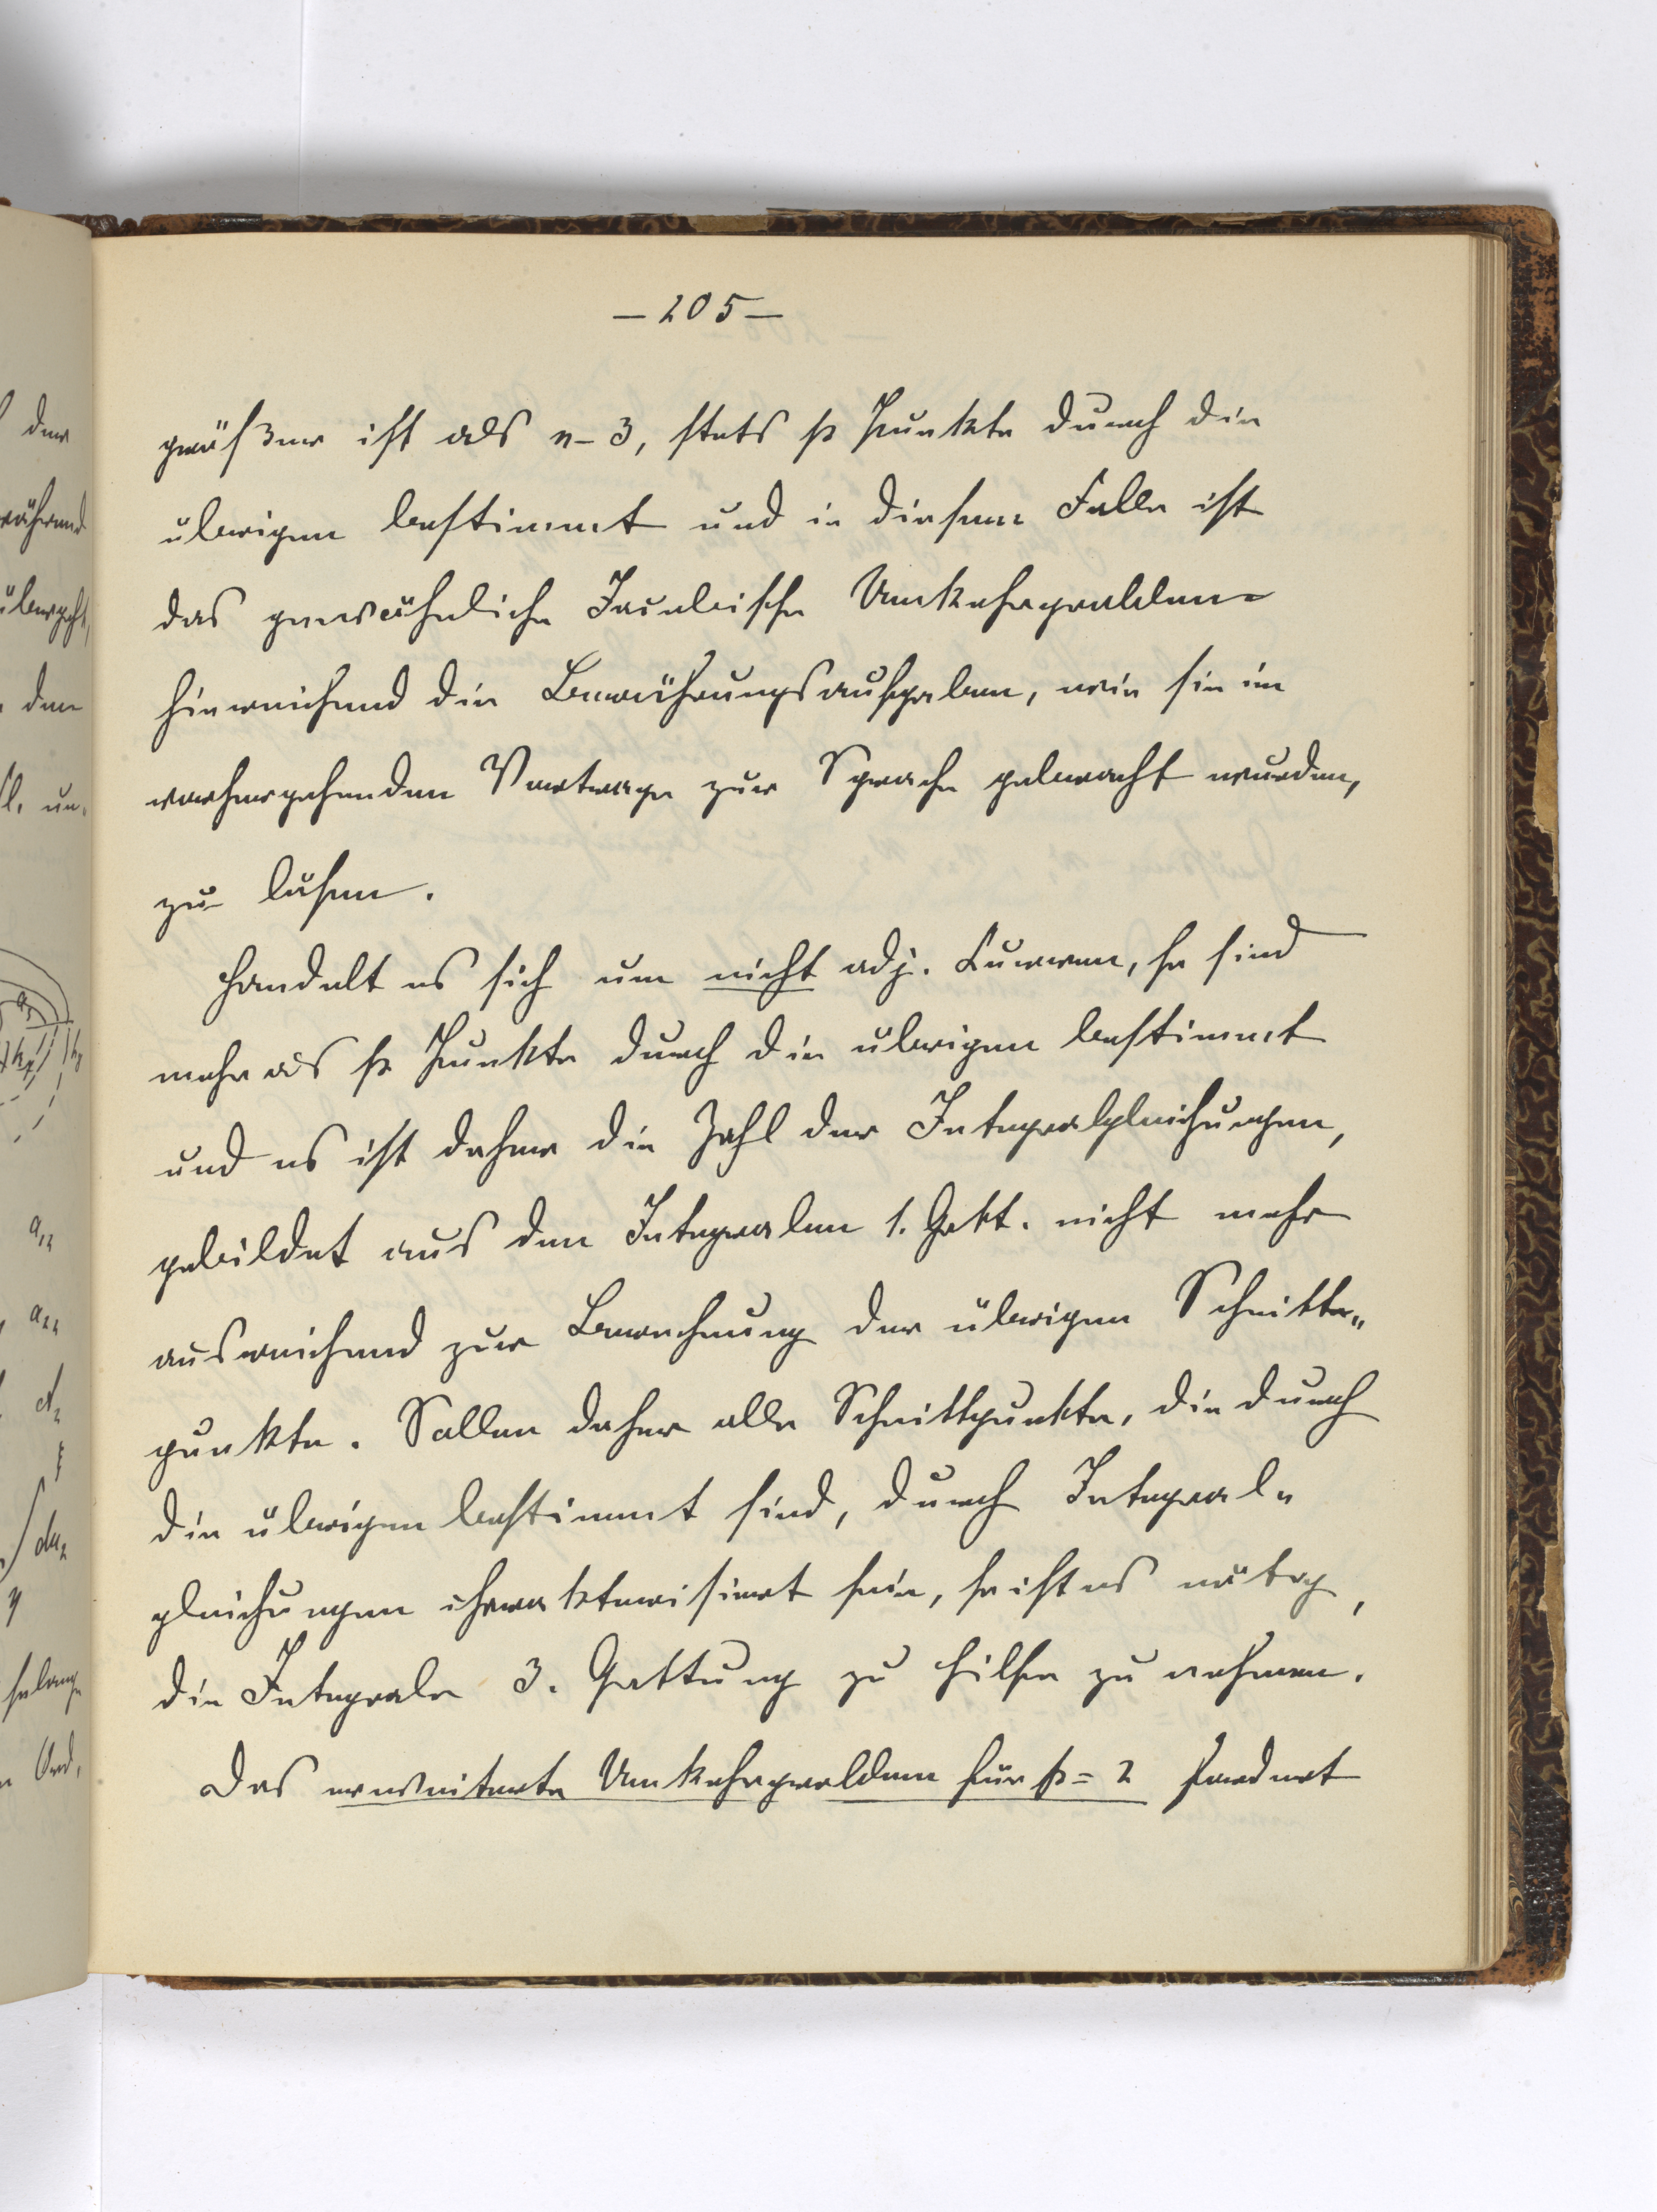 — 205 —
größer ist als n-3, stets p Punkte durch die
übrigen bestimmt und in diesem Falle ist
das gewöhnliche Jacobische Umkehrproblem
hinreichend die Berührungsaufgaben, wie sie im
vorhergehenden Vortrage zur Sprache gebracht wurden,
zu lösen.
Handelt es sich um nicht adj. Curven, so sind
mehr als p Punkte durch die übrigen bestimmt
und es ist daher die Zahl der Integralgleichungen,
gebildet aus den Integralen 1. Gatt. nicht mehr
ausreichend zur Berechnung der übrigen Schnitt„
punkte. Sollen daher alle Schnittpunkte, die durch
die übrigen bestimmt sind, durch Integral„
gleichungen charakterisiert sein, so ist es nötig,
die Integrale 3. Gattung zu Hilfe zu nehmen.
Das erweiterte Umkehrproblem für p=2 fordert